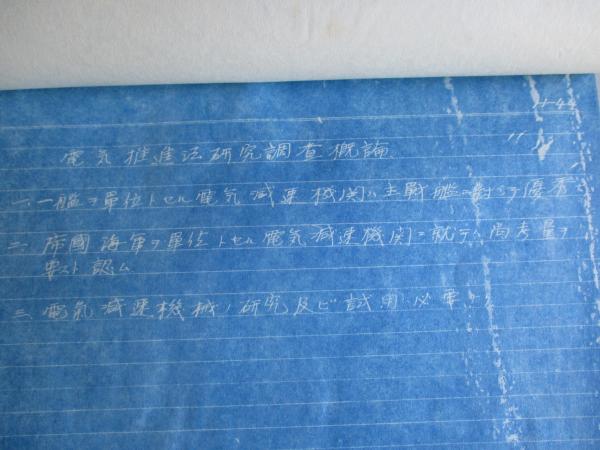 電気推進法研究調査概論
一、一艦ヲ單位トセル電気減速機関ハ主戰艦ニ對シテ優秀
二、帝國海軍ヲ單位トセル電気減速機関ニ就テハ尚考量ヲ
要スト認ム
三、電気減速機械ノ研究及ビ試用ハ必要